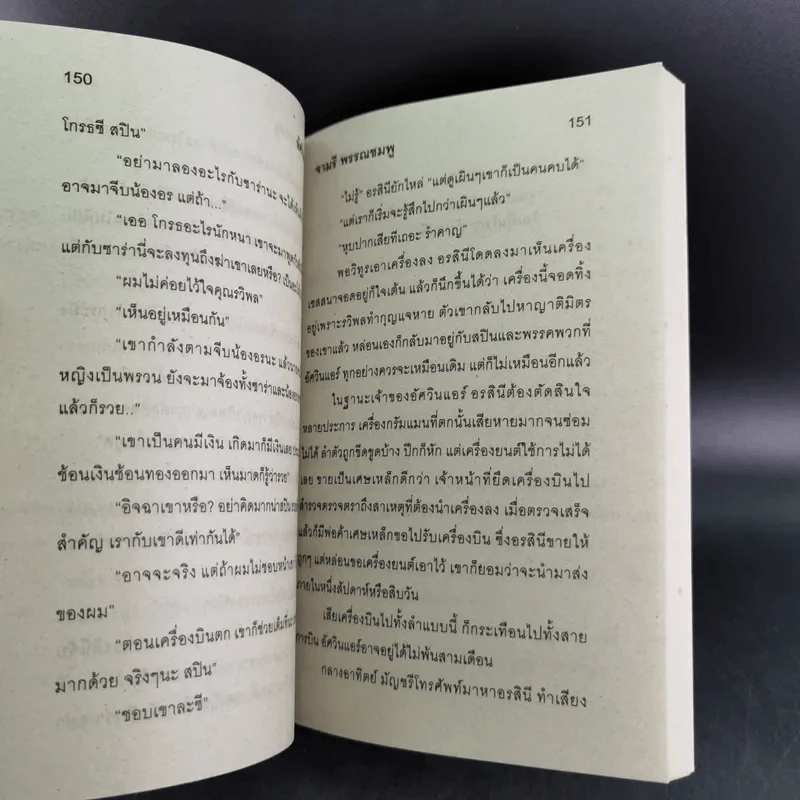 150
โกรธซี สปิน”
“อย่ามาลองอะไรกับซาร่านะ จะได้
อาจมาจีบน้องอร แต่ถ้า...”
“เออ โกรธอะไรนักหนา เขาจะมา
แต่กับซาร่านี่จะลงทุนถึงฆ่าเขาเลยหรือ?
“ผมไม่ค่อยไว้ใจคุณรวิพล”
“เห็นอยู่เหมือนกัน”
“เขากำลังตามจีบน้องอรนะ แล้ว
หญิงเป็นพรวน ยังจะมาจ้องทั้งซาร่าและน้อง
แล้วก็รวย..”
“เขาเป็นคนมีเงิน เกิดมาก็มีเงินเลย
ช้อนเงินช้อนทองออกมา เห็นมาดก็รู้ว่ารวย”
“อิจฉาเขาหรือ? อย่าคิดมากน่าสปิน
สำคัญ เรากับเขาดีเท่ากันได้”
“อาจจะจริง แต่ถ้าผมไม่ชอบหน้าเขา
ของผม”
“ตอนเครื่องบินตก เขาก็ช่วยเต็มที่นะ
มากด้วย จริงๆนะ สปิน”
“ชอบเขาละซี”
151
จามรี พรรณชมพู
“ไม่รู้” อรสินียักไหล่ “แต่ดูเผินๆเขาก็เป็นคนคบได้”
“แต่เราก็เริ่มจะรู้สึกไปกว่าเผินๆแล้ว”
“หุบปากเสียทีเถอะ รำคาญ”
พอวิทูรเอาเครื่องลง อรสินีโดดลงมาเห็นเครื่อง
เซสสนาจอดอยู่ก็ใจเต้น แล้วก็นึกขึ้นได้ว่า เครื่องนี้จอดทิ้ง
อยู่เพราะรวิพลทำกุญแจหาย ตัวเขากลับไปหาญาติมิตร
ของเขาแล้ว หล่อนเองก็กลับมาอยู่กับสปินและพรรคพวกที่
อัศวินแอร์ ทุกอย่างควรจะเหมือนเดิม แต่ก็ไม่เหมือนอีกแล้ว
ในฐานะเจ้าของอัศวินแอร์ อรสินีต้องตัดสินใจ
หลายประการ เครื่องกรัมแมนที่ตกนั้นเสียหายมากจนซ่อม
ไม่ได้ ลำตัวถูกขีดขูดบ้าง ปีกก็หัก แต่เครื่องยนต์ใช้การไม่ได้
เลย ขายเป็นเศษเหล็กดีกว่า เจ้าหน้าที่ยึดเครื่องบินไป
สำรวจตรวจตราถึงสาเหตุที่ต้องนำเครื่องลง เมื่อตรวจเสร็จ
แล้วก็มีพ่อค้าเศษเหล็กขอไปรับเครื่องบิน ซึ่งอรสินีขายให้
ถูกๆ แต่หล่อนขอเครื่องยนต์เอาไว้ เขาก็ยอมว่าจะนำมาส่ง
ภายในหนึ่งสัปดาห์หรือสิบวัน
เสียเครื่องบินไปทั้งลำแบบนี้ ก็กระเทือนไปทั้งสาย
การบิน อัศวินแอร์อาจอยู่ได้ไม่พ้นสามเดือน
กลางอาทิตย์ มัญชรีโทรศัพท์มาหาอรสินี ทำเสียง